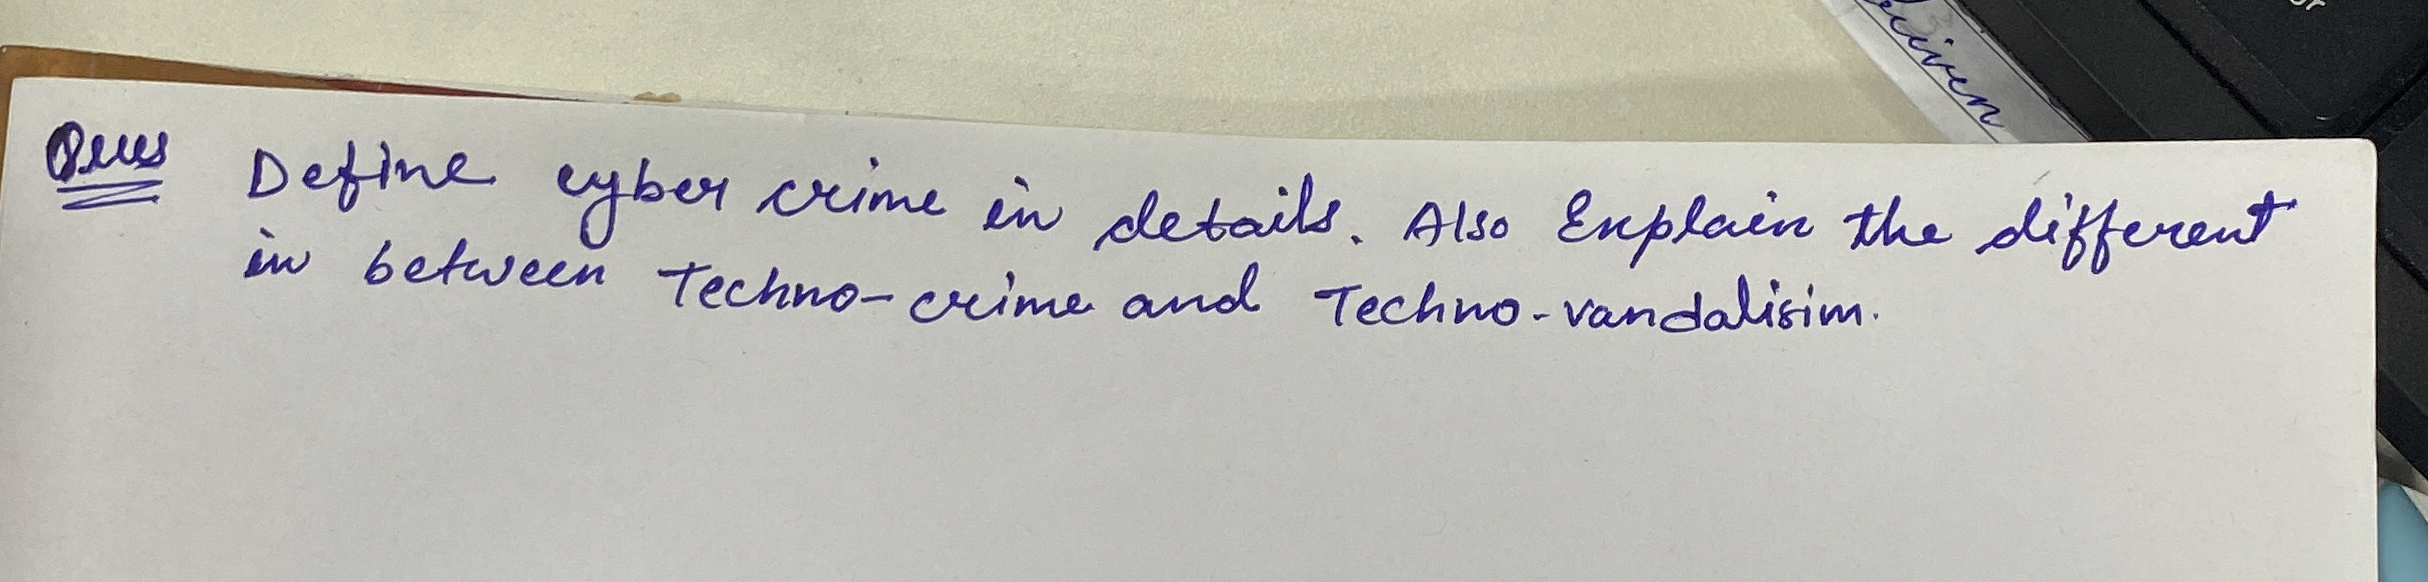 Ques Define cyber crime in details. Also Explain the different
in between Techno-crime and Techno-vandalisim.